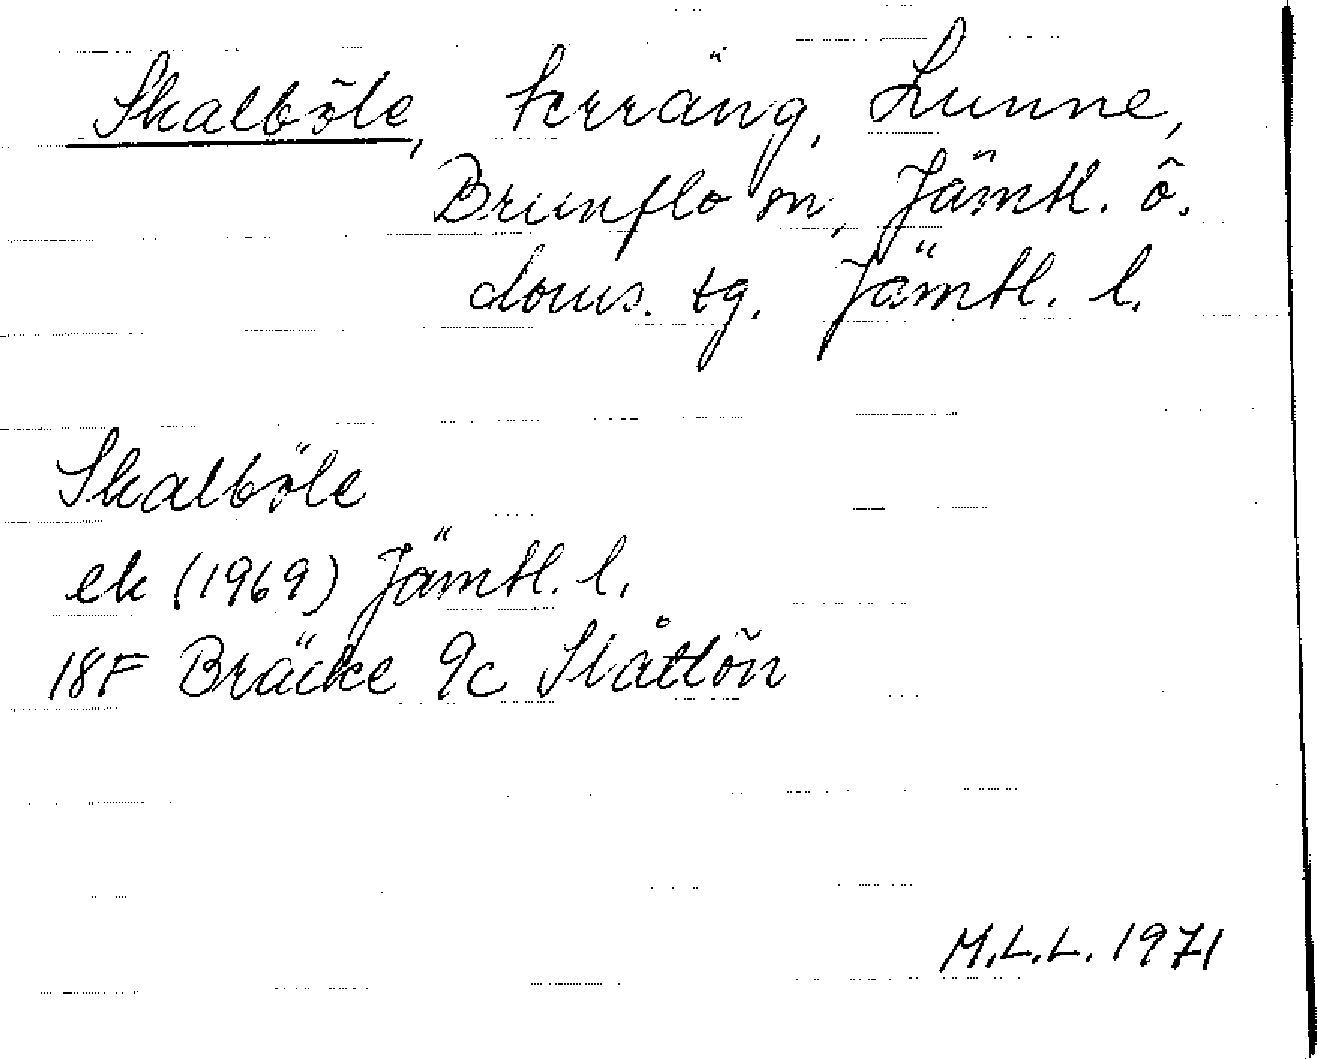 Skalböle, terräng, Lunne,
Brunflo sn, Jämtl. ö.
doms. tg. Jämtl. l.
Skalböle
ek (1969) Jämtl. l.
18F Bräcke 9c Slåttön
M.L.L. 1971